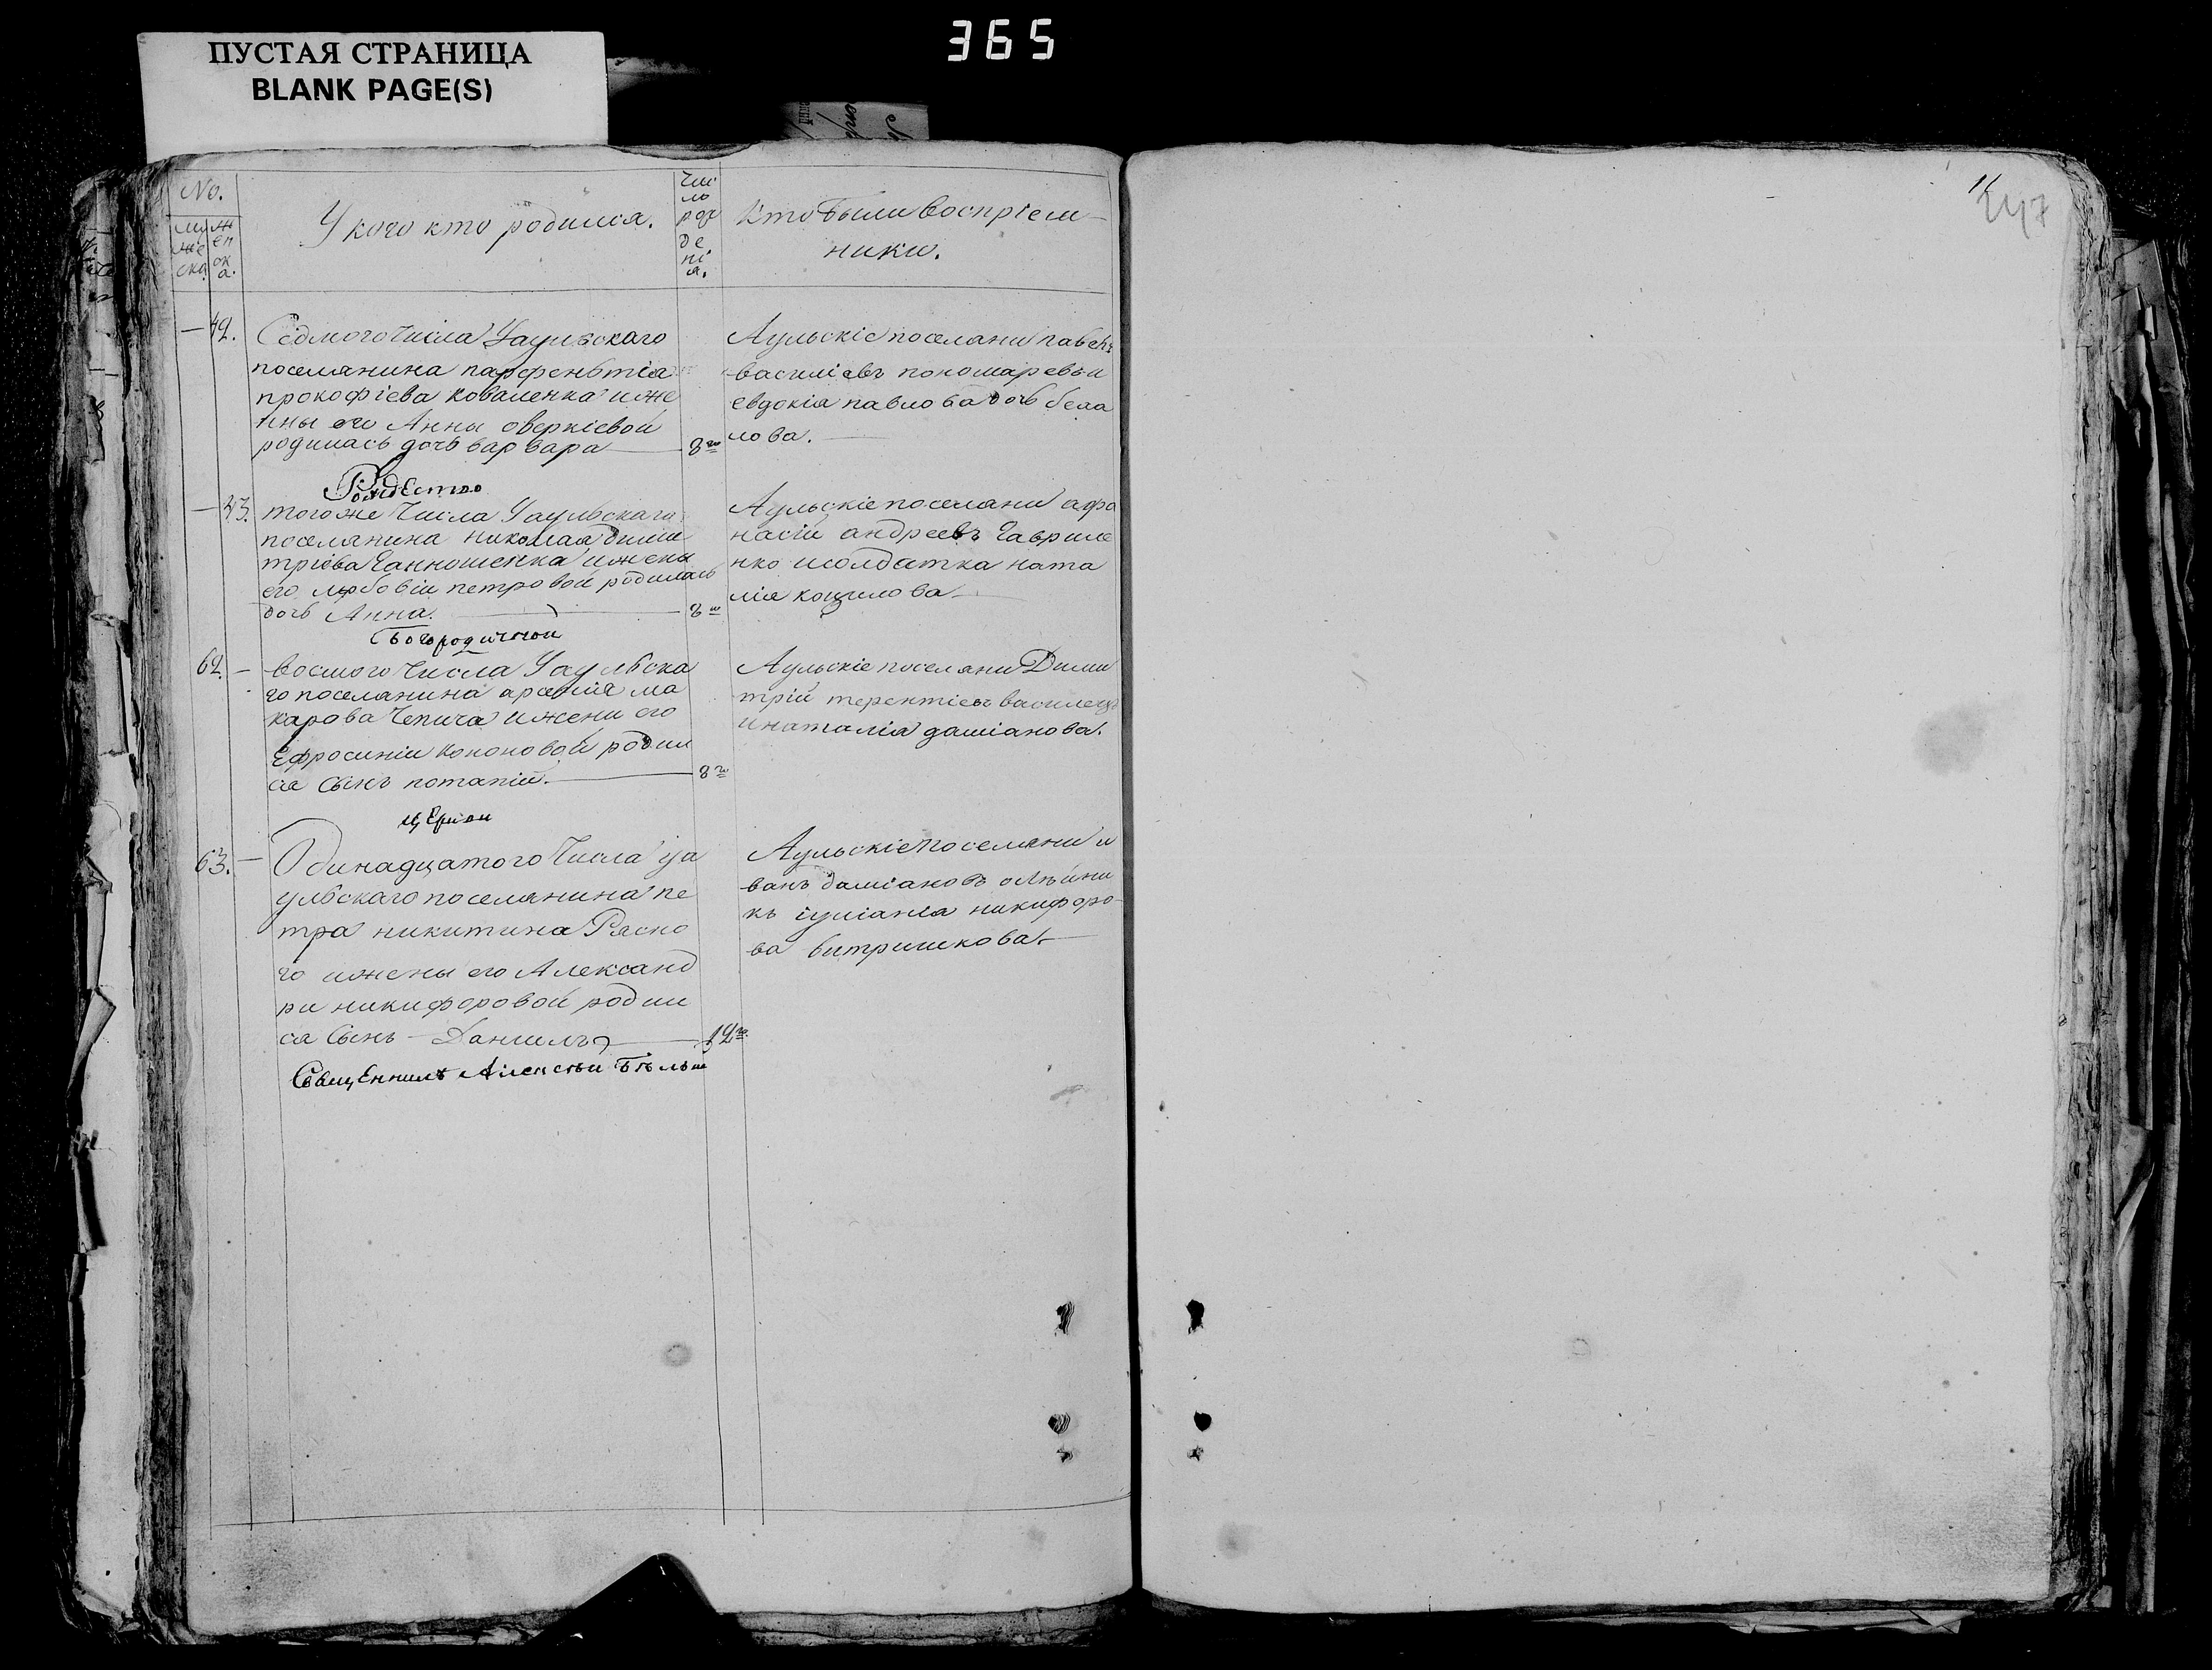 365
ПУСТАЯ СТРАНИЦА
BLANK PAGE(S)
No.
му
же
ска.
ж
ен
ск
а.
У кого кто родился.
Чис
ло
рож
де
ні
я.
Кто были Воспріем
ники.
— 42.
Седмого числа Уаульского
поселянина парфеньтія
прокофіева коваленка и же
нны его Анны оверкіевой
родилась дочь варвара — 8го
Аульскіе поселяни павелъ
василіевъ пономаревъ и
евдокія павлова дочь бела
лова.
Рождество
— 43.
того же числа Уаульскаго
поселянина николая дими
тріева Ганношенка и жены
его любовіи петровой родилась
дочь Анна. — 8го
Аульскіе поселяни афа
насій андреевъ Гавриле
нко и солдатка ната
лія коцилова
Богородичной
62. —
восмого числа Уаульска
го поселянина арсенія ма
карова Чепича и жени его
Ефросиніи кононовой родил
ся сынъ потапій. — 8го
Аульскіе поселяни Дими
трій терентіевъ василецъ
и наталія даміанова.
церкви
63. —
Одинадцатого числа уа
ульского поселянина пе
тра никитина Расно
го и жены его Александ
ри никифоровой родил
ся Сынъ — Даниилъ — 12го
Аульскіе поселяни и
ванъ даміановъ олѣйни
къ іуліанія никифоро
ва витришкова.
Священникъ Алексѣй
247